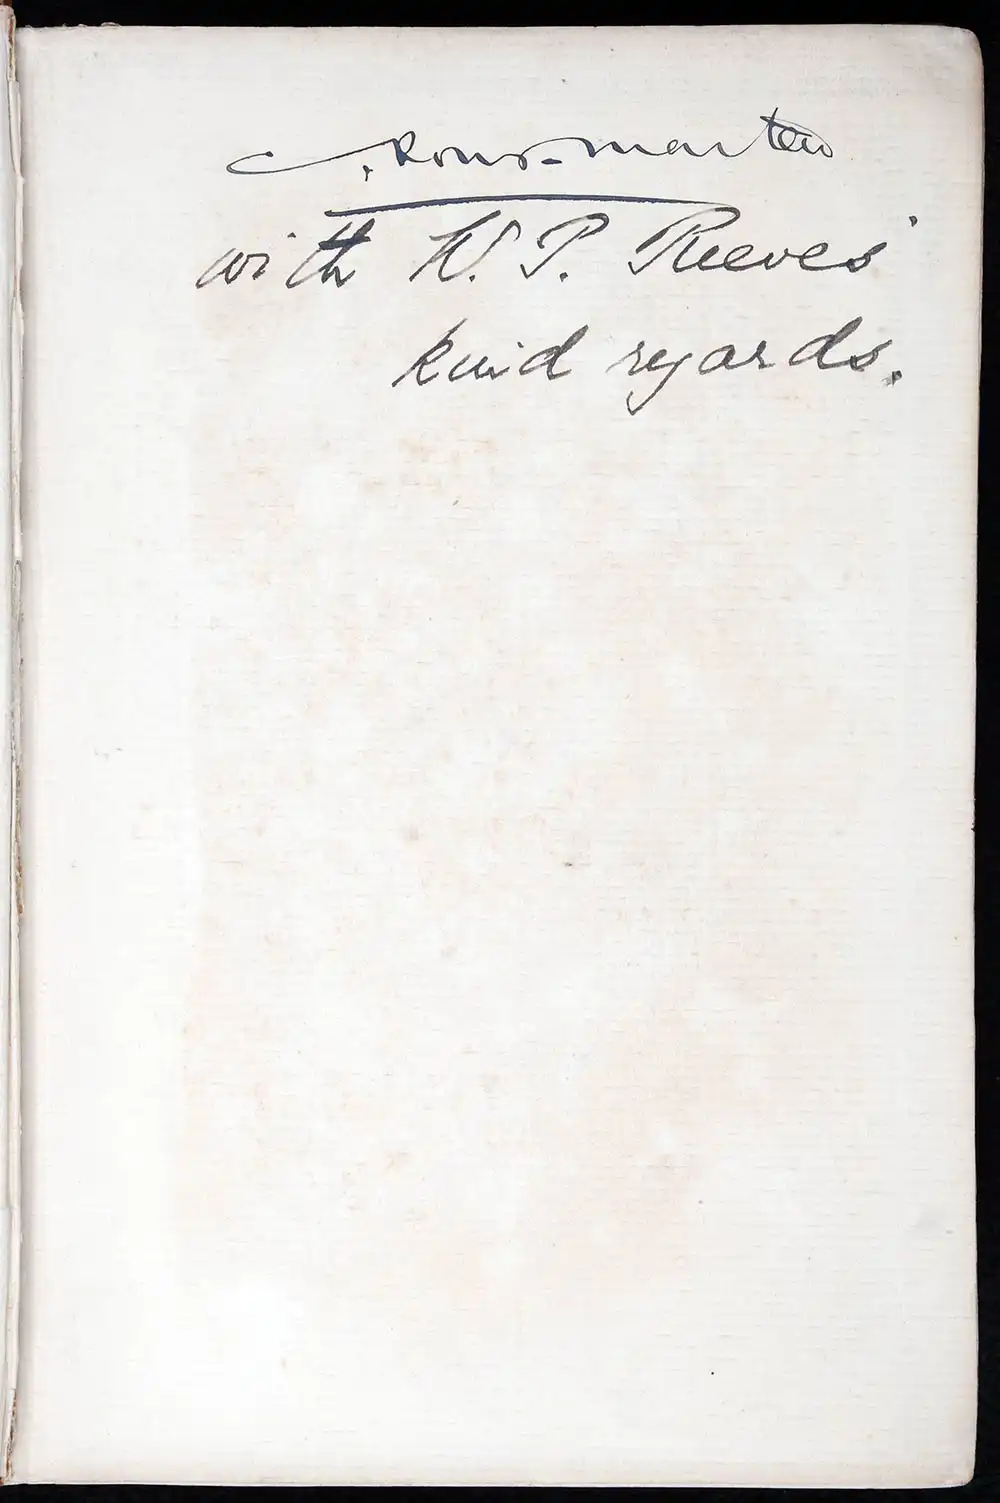 C. Rous-Marten
with W. P. Reeves'
kind regards.